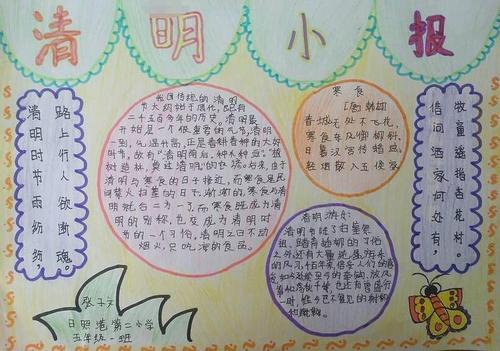 清明小报
清明时节雨纷纷，
路上行人欲断魂。
我国传统的清明
节大约始于周代，已有
二千五百多年的历史。清明最
开始是一个很重要的节气，清明
一到，气温升高，正是春耕春种的大好
时节，故有“清明前后，种瓜种豆”。“植
树造林，莫过清明”的农谚。后来，由于
清明与寒食的日子接近，而寒食是民
间禁火扫墓的日子，渐渐的，寒食与清
明就合二为一了，而寒食既成为清
明的别称，也变成为清明时
节的一个习俗，清明之日不动
烟火，只吃凉的食品。
寒食
[唐]韩翃
春城无处不飞花，
寒食东风御柳斜。
日暮汉宫传蜡烛，
轻烟散入五侯家
借问酒家何处有，
牧童遥指杏花村。
清明游处
清明节除了扫墓祭
祖、踏青插柳的习俗
之外还有
千百年来
日照港第二小学
五年级一班